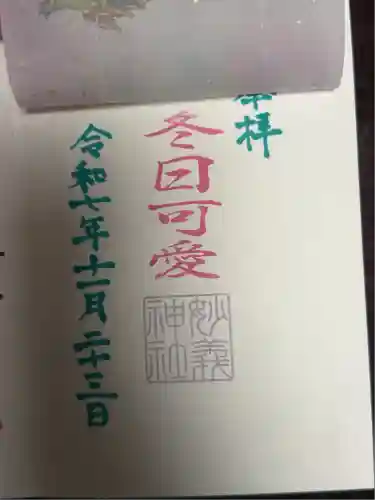 奉拝
冬日可愛
妙義
神社
令和七年十一月二十三日